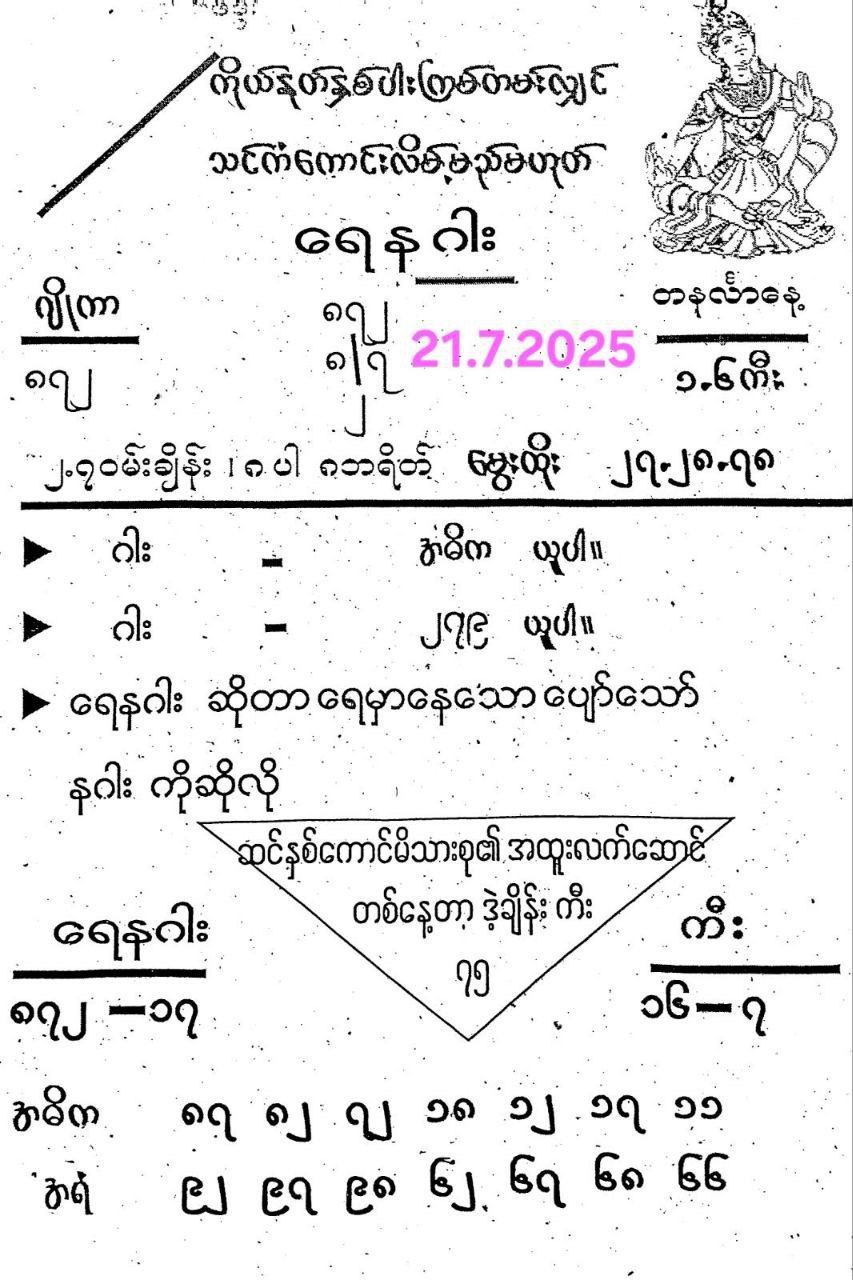 ကိုယ်နုတ်နှစ်ပါးကြမ်တမ်းလျှင်
သင်္ကံကောင်းလိမ့်မည်မဟုတ်
ရေနဂါး
ဂျိုကာ
၈၇၂
တနင်္လာနေ့
၈၇၂
၈|၇
၂
21.7.2025
၁.၆ကီး
၂.၇ဝမ်းချိန်း ၊ ၈ ပါ ၈ဘရိတ် မွေးထိုး ၂၇.၂၈.၇၈
▶ ဂါး - အဓိက ယူပါ။
▶ ဂါး - ၂၇၉ ယူပါ။
▶ ရေနဂါး ဆိုတာ ရေမှာနေသော ပျော်သော်
နဂါး ကိုဆိုလို
ဆင်နှစ်ကောင်မိသားစု၏ အထူးလက်ဆောင်
တစ်နေ့တာ ဒဲ့ချိန်း ကီး
၇၅
ရေနဂါး
၈၇၂ – ၁၇
ကီး
၁၆ – ၇
အဓိက ၈၇ ၈၂ ၇၂ ၁၈ ၁၂ ၁၇ ၁၁
အရံ ၉၂ ၉၇ ၉၈ ၆၂ ၆၇ ၆၈ ၆၆